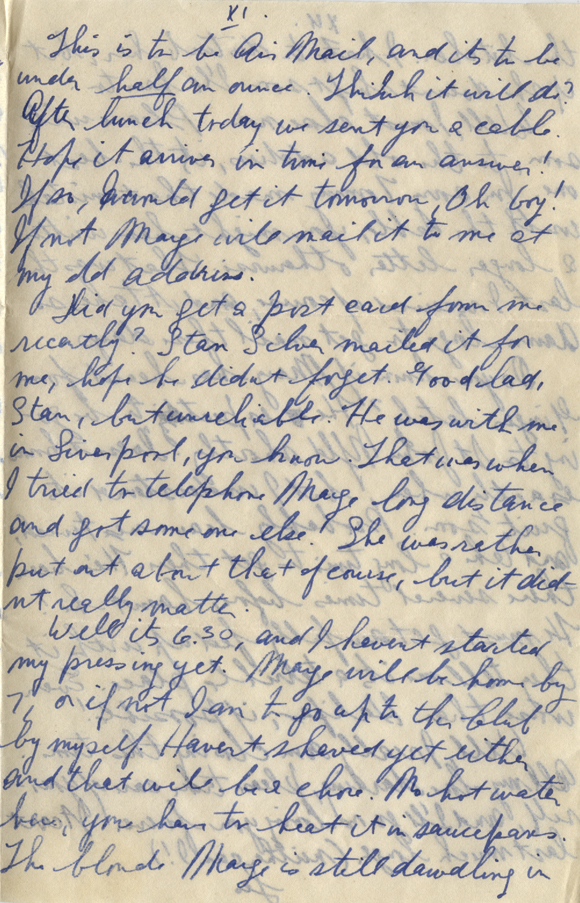 XI.
This is to be Air Mail, and its to be
under half an ounce. Think it will do?
After lunch today we sent you a cable.
Hope it arrives in time for an answer!
If so, I would get it tomorrow, Oh boy!
If not Marge will mail it to me at
my old address.
Did you get a post card from me
recently? Stan Silver mailed it for
me, hope he didnt forget. Good lad,
Stan, but unreliable. He was with me
in Liverpool, you know. That was when
I tried to telephone Marge long distance
and got some one else. She was rather
put out about that of course, but it did
nt really matter.
Well its 6.30, and I havent started
my pressing yet. Marge will be home by
7, or if not I am to go up to the Club
by myself. Havent shaved yet either
and that will be a chore. No hot water
here, you have to heat it in saucepans.
The blonde Marge is still dawdling in